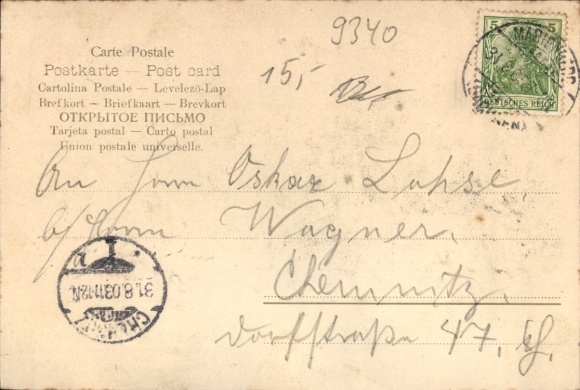 9340
Carte Postale
Postkarte — Post card
Cartolina Postale — Levelező-Lap
Brefkort — Briefkaart — Brevkort
ОТКРЫТОЕ ПИСЬМО
Tarjeta postal — Carto postal
Union postale universelle.
15,-
5 5
DEUTSCHES REICH
An Herrn Oskar Lohse,
b/Herrn Wagner,
Chemnitz,
Dorfstraße 47, II.
31.8.03 11-12N.
CHEMNITZ